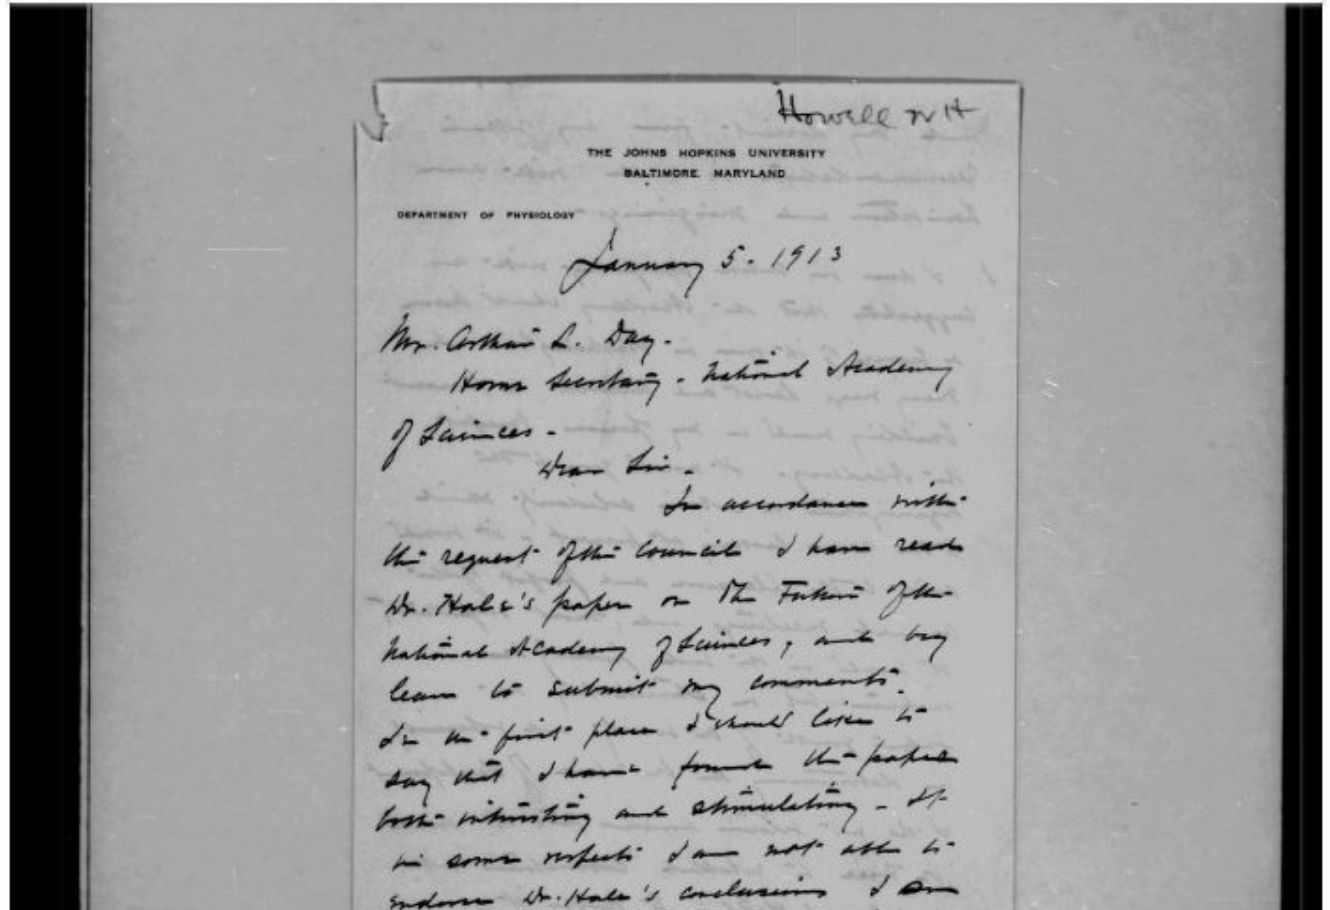 Howell W H
THE JOHNS HOPKINS UNIVERSITY
BALTIMORE, MARYLAND
DEPARTMENT OF PHYSIOLOGY
January 5 - 1913
Mr. Arthur L. Day.
Home Secretary - National Academy
of Sciences -
Dear Sir -
In accordance with
the request of the Council I have read
Dr. Hale's paper on The Future of the
National Academy of Sciences, and beg
leave to submit my comments.
In the first place I should like to
say that I have found the paper
both interesting and stimulating - If
in some respects I am not able to
endorse Dr. Hale's conclusions I am